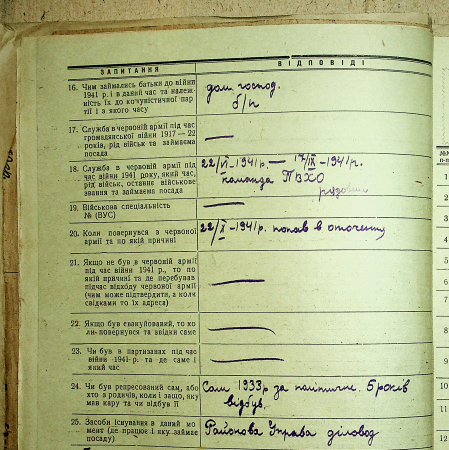 ЗАПИТАННЯ
ВІДПОВІДІ
16. Чим займались батьки до війни
1941 р. і в даний час та належ-
ність їх до комуністичної пар-
тії і з якого часу
дом. господ.
б/п
17. Служба в червоній армії під час
громадянської війни 1917 — 22
років, рід військ та займаєма
посада
18. Служба в червоній армії під
час війни 1941 року, який час,
рід військ, останнє військове
звання та займаєма посада
22/VI-1941р. — 17/IX-1941р.
команда ПВХО
рядовий
19. Військова спеціальність
№ (ВУС)
20. Коли повернувся з червоної
армії та по якій причині
22/X-1941р. попав в оточення
21. Якщо не був в червоній армії
під час війни 1941 р., то по
якій причині та де перебував
підчас відходу червоної армії
(чим може підтвердити, а коли
свідками то їх адреса)
22. Якщо був евакуйований, то ко-
ли повернувся та звідки саме
23. Чи був в партизанах під час
війни 1941 р. та де саме і
який час
24. Чи був репресований сам, або
хто з родичів, коли і защо, яку
мав кару та чи відбув її
Сам 1933р за політичне. 5 років
відбув.
25. Засоби існування в даний мо-
мент (де працює і яку займає
посаду)
Районова Управа діловод
1
2
3
4
5
6
8
9
10
11
12